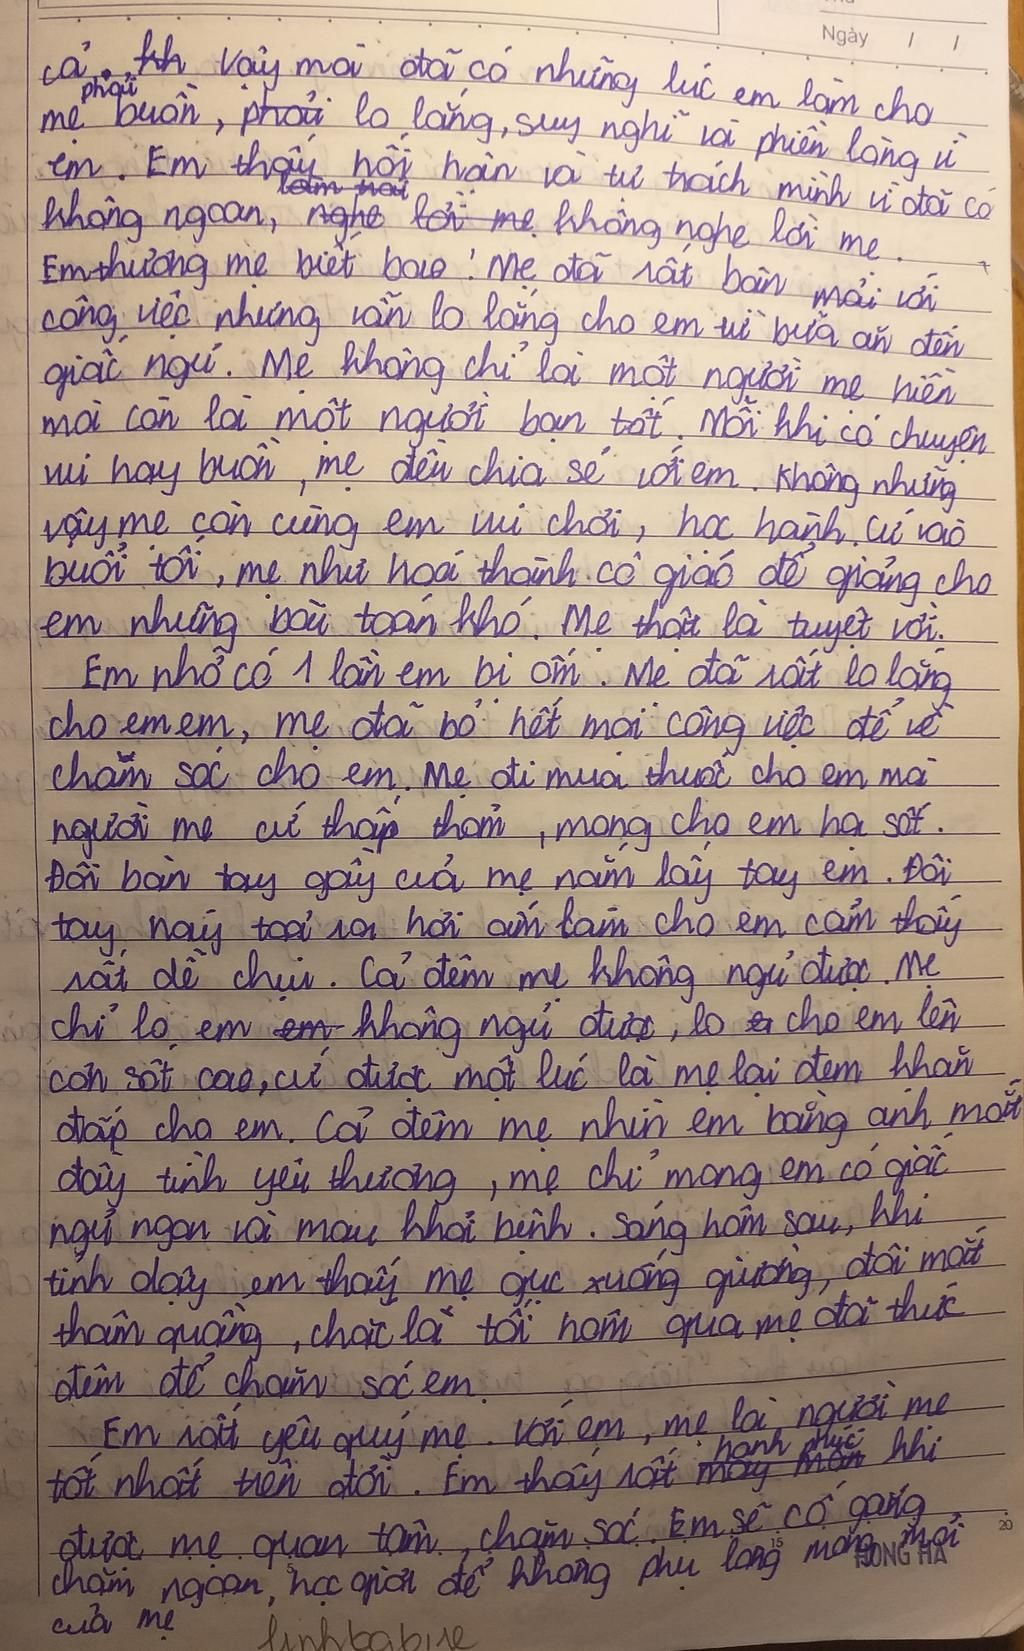 Ngày / /
cả. kh Vậy mà đã có những lúc em làm cho
phải
mẹ buồn, phải lo lắng, suy nghĩ và phiền lòng vì
em. Em thấy hối hận và tự trách mình vì đã có
làm trái
không ngoan, nghe lời mẹ không nghe lời mẹ.
Em thương mẹ biết bao! Mẹ đã rất bận mải với
công việc nhưng vẫn lo lắng cho em từ bữa ăn đến
giấc ngủ. Mẹ không chỉ là một người mẹ hiền
mà còn là một người bạn tốt. Mỗi khi có chuyện
vui hay buồn, mẹ đều chia sẻ với em. Không những
vậy mẹ còn cùng em vui chơi, học hành. Cứ vào
buổi tối, mẹ như hoá thành cô giáo để giảng cho
em những bài toán khó. Mẹ thật là tuyệt vời.
Em nhớ có 1 lần em bị ốm. Mẹ đã rất lo lắng
cho em em, mẹ đã bỏ hết mọi công việc để về
chăm sóc cho em. Mẹ đi mua thuốc cho em mà
người mẹ cứ thấp thỏm, mong cho em hạ sốt.
Đôi bàn tay gầy của mẹ nắm lấy tay em. Đôi
tay này toả ra hơi ấm làm cho em cảm thấy
rất dễ chịu. Cả đêm mẹ không ngủ được. Mẹ
chỉ lo em em không ngủ được, lo cho em lên
cơn sốt cao, cứ được một lúc là mẹ lại đem khăn
đắp cho em. Cả đêm mẹ nhìn em bằng ánh mắt
đầy tình yêu thương, mẹ chỉ mong em có giấc
ngủ ngon và mau khỏi bệnh. Sáng hôm sau, khi
tỉnh dậy em thấy mẹ gục xuống giường, đôi mắt
thâm quầng, chắc là tối hôm qua mẹ đã thức
đêm để chăm sóc em.
Em rất yêu quý mẹ. Với em, mẹ là người mẹ
hạnh phúc
tốt nhất trên đời. Em thấy rất may mắn khi
được mẹ quan tâm, chăm sóc. Em sẽ cố gắng
chăm ngoan, học giỏi để không phụ lòng mong mỏi
của mẹ
5 15 20
HONG HA
linhbabine